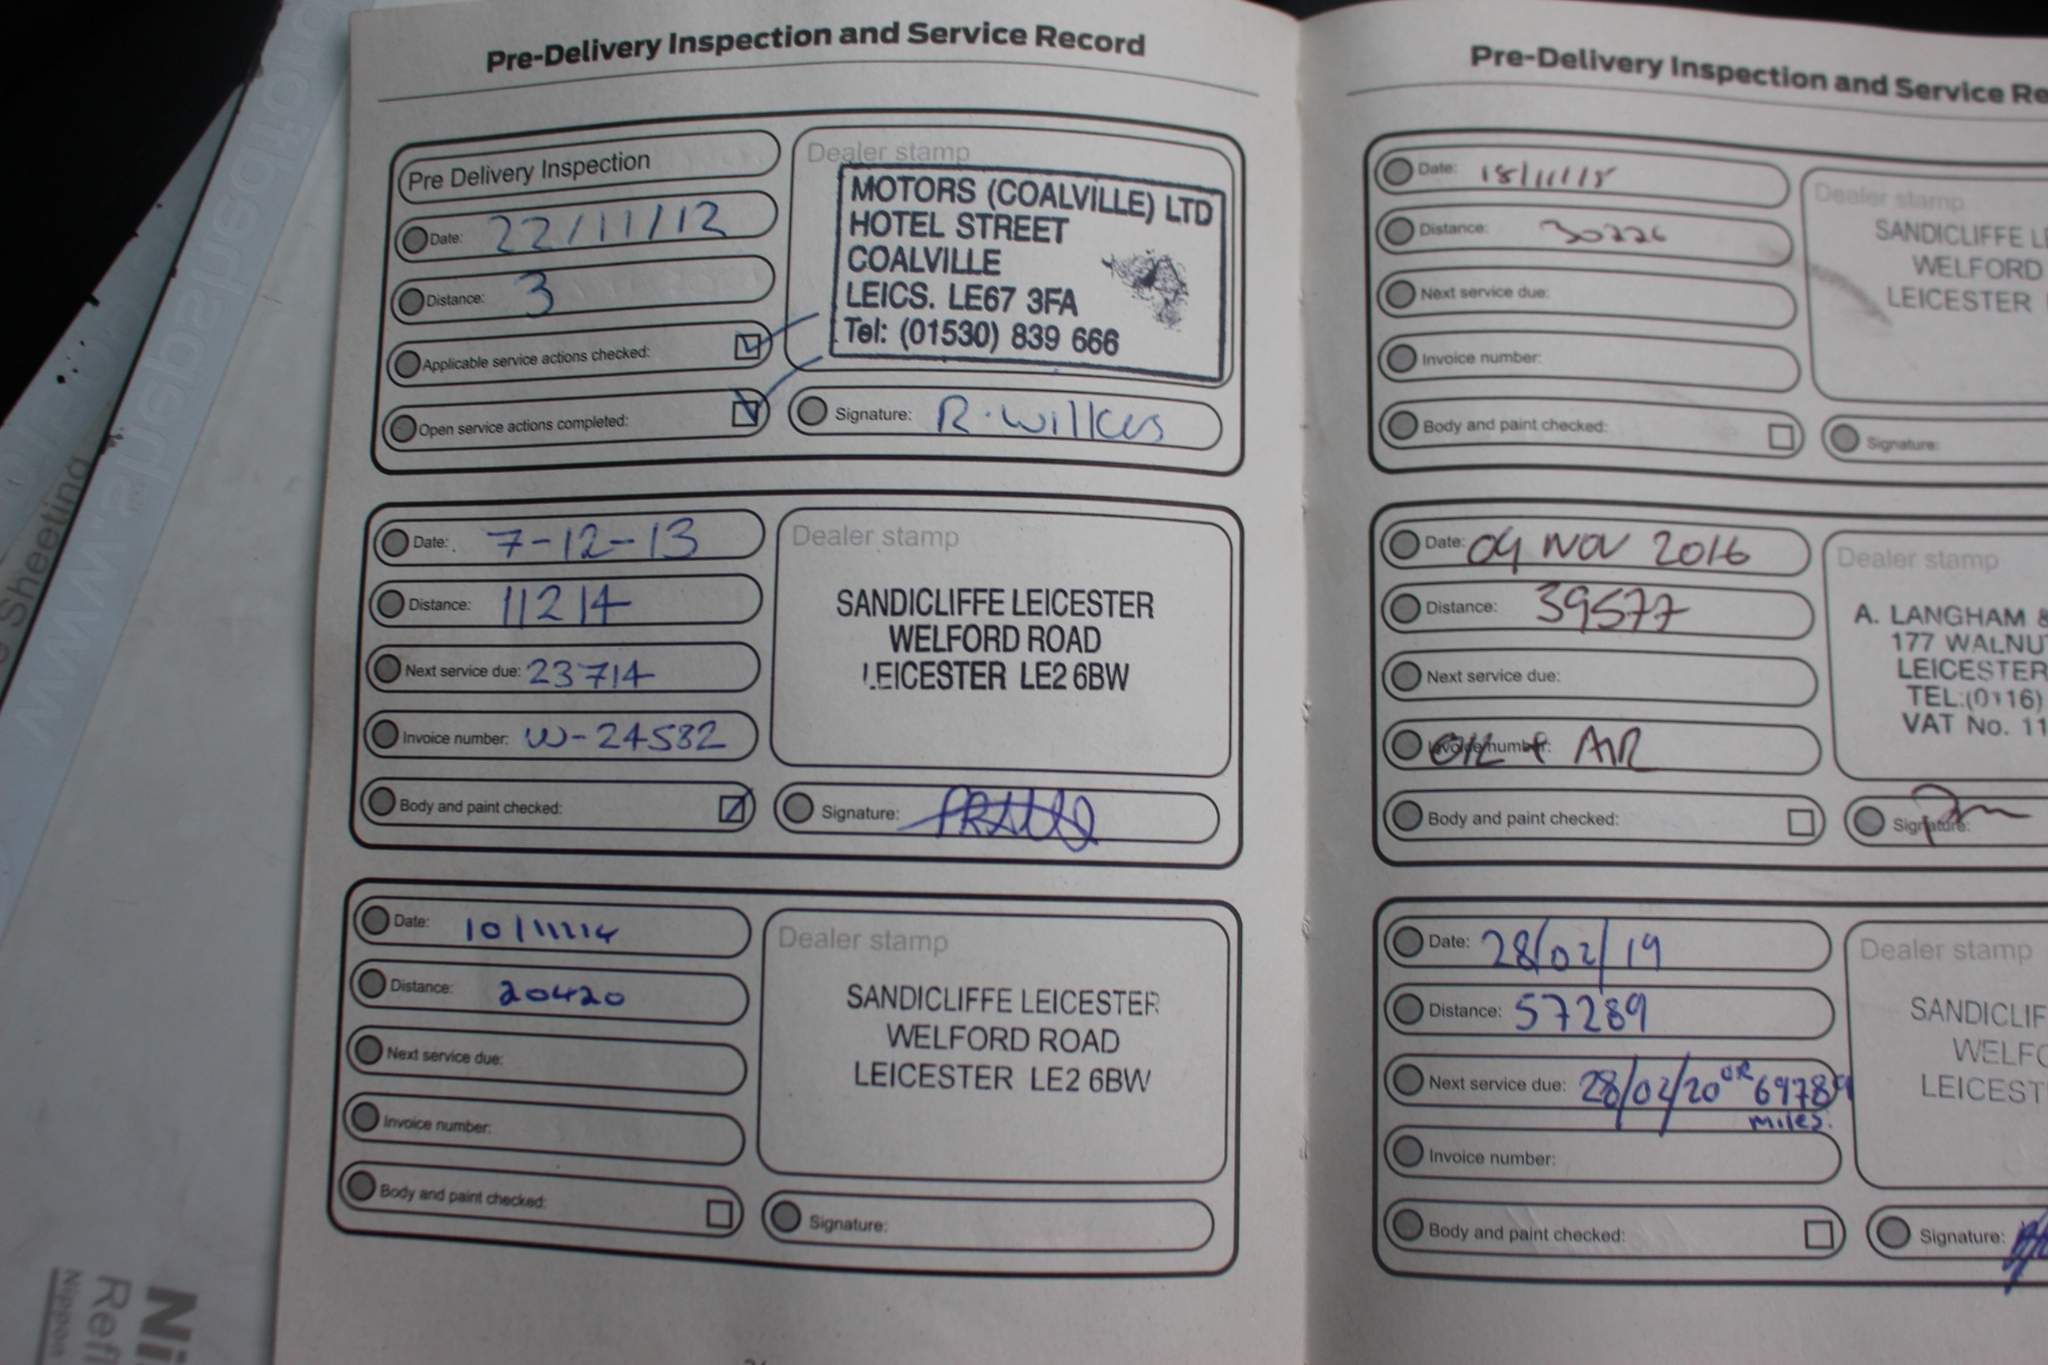 Pre-Delivery Inspection and Service Record
Pre Delivery Inspection
Date: 22/11/12
Distance: 3
Applicable service actions checked:
Open service actions completed:
Dealer stamp
MOTORS (COALVILLE) LTD
HOTEL STREET
COALVILLE
LEICS. LE67 3FA
Tel: (01530) 839 666
Signature: R. Wilkes
Date: 7-12-13
Distance: 11214
Next service due: 23714
Invoice number: W-24582
Body and paint checked:
Dealer stamp
SANDICLIFFE LEICESTER
WELFORD ROAD
LEICESTER LE2 6BW
Signature:
Date: 10/11/14
Distance: 20420
Next service due:
Invoice number:
Body and paint checked:
Dealer stamp
SANDICLIFFE LEICESTER
WELFORD ROAD
LEICESTER LE2 6BW
Signature:
Pre-Delivery Inspection and Service Re
Date: 18/11/15
Distance: 30226
Next service due:
Invoice number:
Body and paint checked:
Dealer stamp
SANDICLIFFE LE
WELFORD
LEICESTER
Signature:
Date: 09 NOV 2016
Distance: 39577
Next service due:
Invoice number: OIL + AIR
Body and paint checked:
Dealer stamp
A. LANGHAM &
177 WALNU
LEICESTER
TEL:(0116)
VAT No. 11
Signature:
Date: 28/02/19
Distance: 57289
Next service due: 28/02/20 OR 69789
miles.
Invoice number:
Body and paint checked:
Dealer stamp
SANDICLIF
WELFO
LEICEST
Signature:
Sheeting
www.
Ni
Refl
Nippon